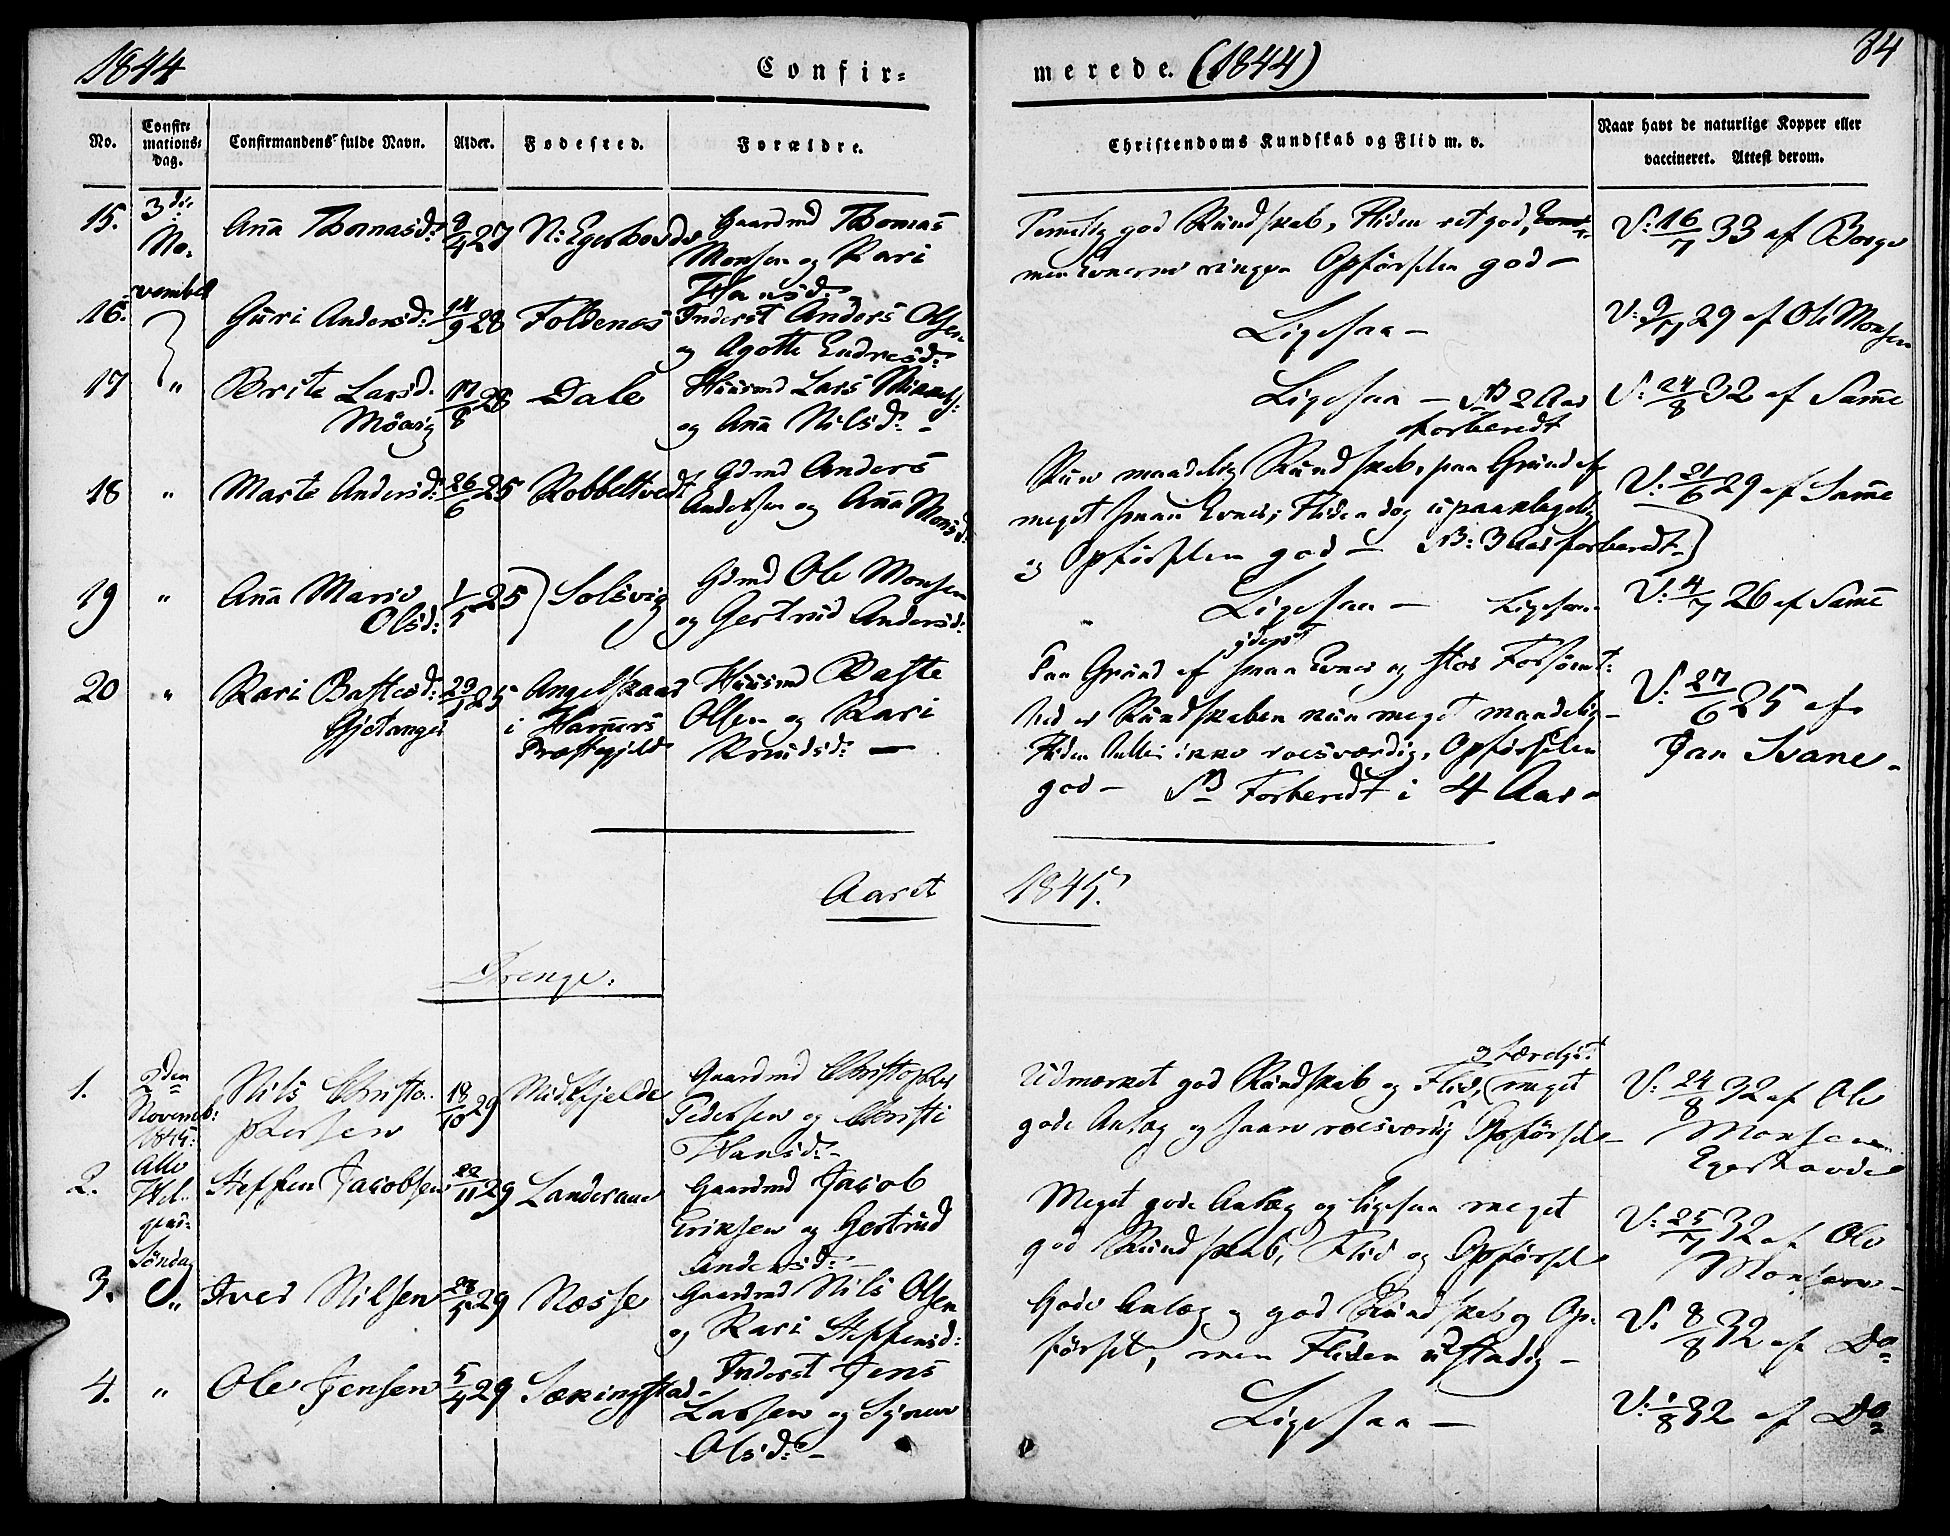 1844
Confir-
merede. (1844)
84
No.
Confir-
mations-
dag.
Confirmandens fulde Navn.
Alder.
Fødested.
Forældre.
Christendoms Kundskab og Flid m. v.
Naar havt de naturlige Kopper eller
vaccineret. Attest derom.
15.
3die
No-
vember
Aña Thomasd:
9/4 27
N: Egerhovde
Gaardmd Thomas
Monsen og Kari
Hansd:
Temelig god Kundskab, Fliden ret god,
men Evnerne ringe. Opførselen god –
V: 16/7 33 af Borge
16.
Guri Andersd:
14/9 28
Foldenæs
Inderst Anders Olsen
og Agotte Endresd:
Ligesaa –
V: 9/7 29 af Ole Monsen
17
"
Brite Larsd.
Møvig
17/8 28
Dale
Huusmd Lars
og Aña Nilsd: –
Ligesaa – NB 2 Aar
forberedt
V: 24/8 32 af Same
18
"
Marte Andersd:
26/6 25
Kobbeltvedt
Gdmd Anders
Andersen og Aña Monsd:
Kun maadelig Kundskab, paa Grund af
meget smaa Evner; Fliden dog upaaklagelig
og Opførselen god – NB: 3 Aar forberedt –
V: 21/6 29 af Same
19
"
Aña Marie
Olsd:
1/5 25
Solsvig
Gdmd Ole Monsen
og Gertrud Andersd:
Ligesaa – Ligesaa
V: 4/7 26 af Same
20
"
Kari Bastesd:
Gjetanger
29/1 25
Angelskaar
i Hamers
Præstegjeld
Huusmd Baste
Olsen og Kari
Knudsd: –
yderst
Paa Grund af smaa Evner og stor Forsømt-
hed er Kundskaben kun meget maadelig –
Fliden heller ikke roesværdig, Opførselen
god – NB Forberedt i 4 Aar –
V: 27/6 25 af
Jan Svane –
Aaret
1845.
Drenge:
1.
2den
Novemb:
1845:
Nils Christo-
phersen
18/10 29
Midtfjelde
Gaardmd Christopher
Pedersen og Christi
Hansd: –
og Færdigh:
Udmærket god Kundskab og Flid, meget
gode Anlæg og saare roesværdig Opførsel –
V: 24/8 32 af Ole
Monsen
Egerhovde
2.
Alle
Hel-
gens-
Søndag
Steffen Jacobsen
22/11 29
Landerane
Gaardmd Jacob
Eriksen og Gertrud
Andersd: –
Meget gode Anlæg og ligesaa meget
god Kundskab, Flid og Opførsel
V: 25/7 32 af Ole
Monsen –
3.
"
Iver Nilsen
23/5 29
Næsse
Gaardmd Nils Olsen
og Kari Steffensd:
Gode Anlæg og god Kundskab og Op-
førsel, men Fliden ustadig –
V: 8/8 32 af Do
4.
"
Ole Jensen
5/4 29
Sækingstad
Inderst Jens
Larsen og Synneve
Olsd: –
Ligesaa –
V: 1/8 32 af Do